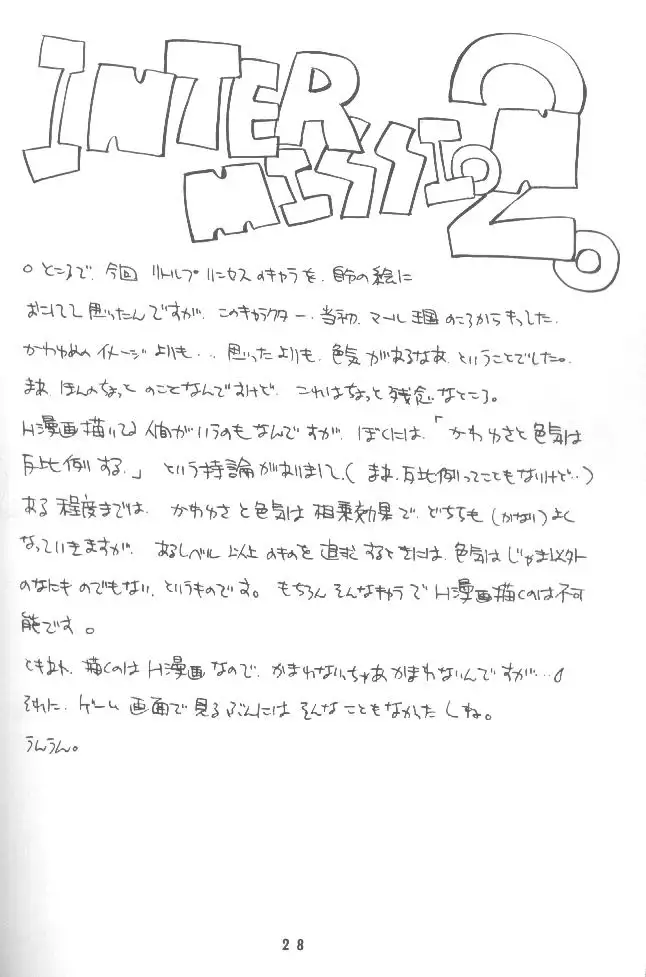 INTER
MISSION
2。
○ ところで、今回 リトルプリンセスのキャラを、自分の絵に
おこしてて思ったんですが、このキャラクター、当初、マール王国のころからもってした、
かわゆめのイメージよりも、、思ったよりも、色気があるなあ、ということでした。
まあ、ほんのちょっとのことなんですけど、これはちょっと残念なところ。
H漫画描いてる人間がいうのもなんですが、ぼくには、「かわゆさと色気は
反比例する。」という持論がありまして、(まあ、反比例ってこともないけど‥)
ある程度までは、かわゆさと色気は相乗効果で、どちらも(かなり)よく
なっていきますが、あるレベル以上のものを追求するときには、色気はじゃま以外
のなにものでもない、というものです。もちろん そんなキャラでH漫画描くのは不可
能です。
ともあれ、描くのはH漫画なので、かまわないっちゃあかまわないんですが…。
それに、ゲーム画面で見るぶんにはそんなこともなかったしね。
うんうん。
28